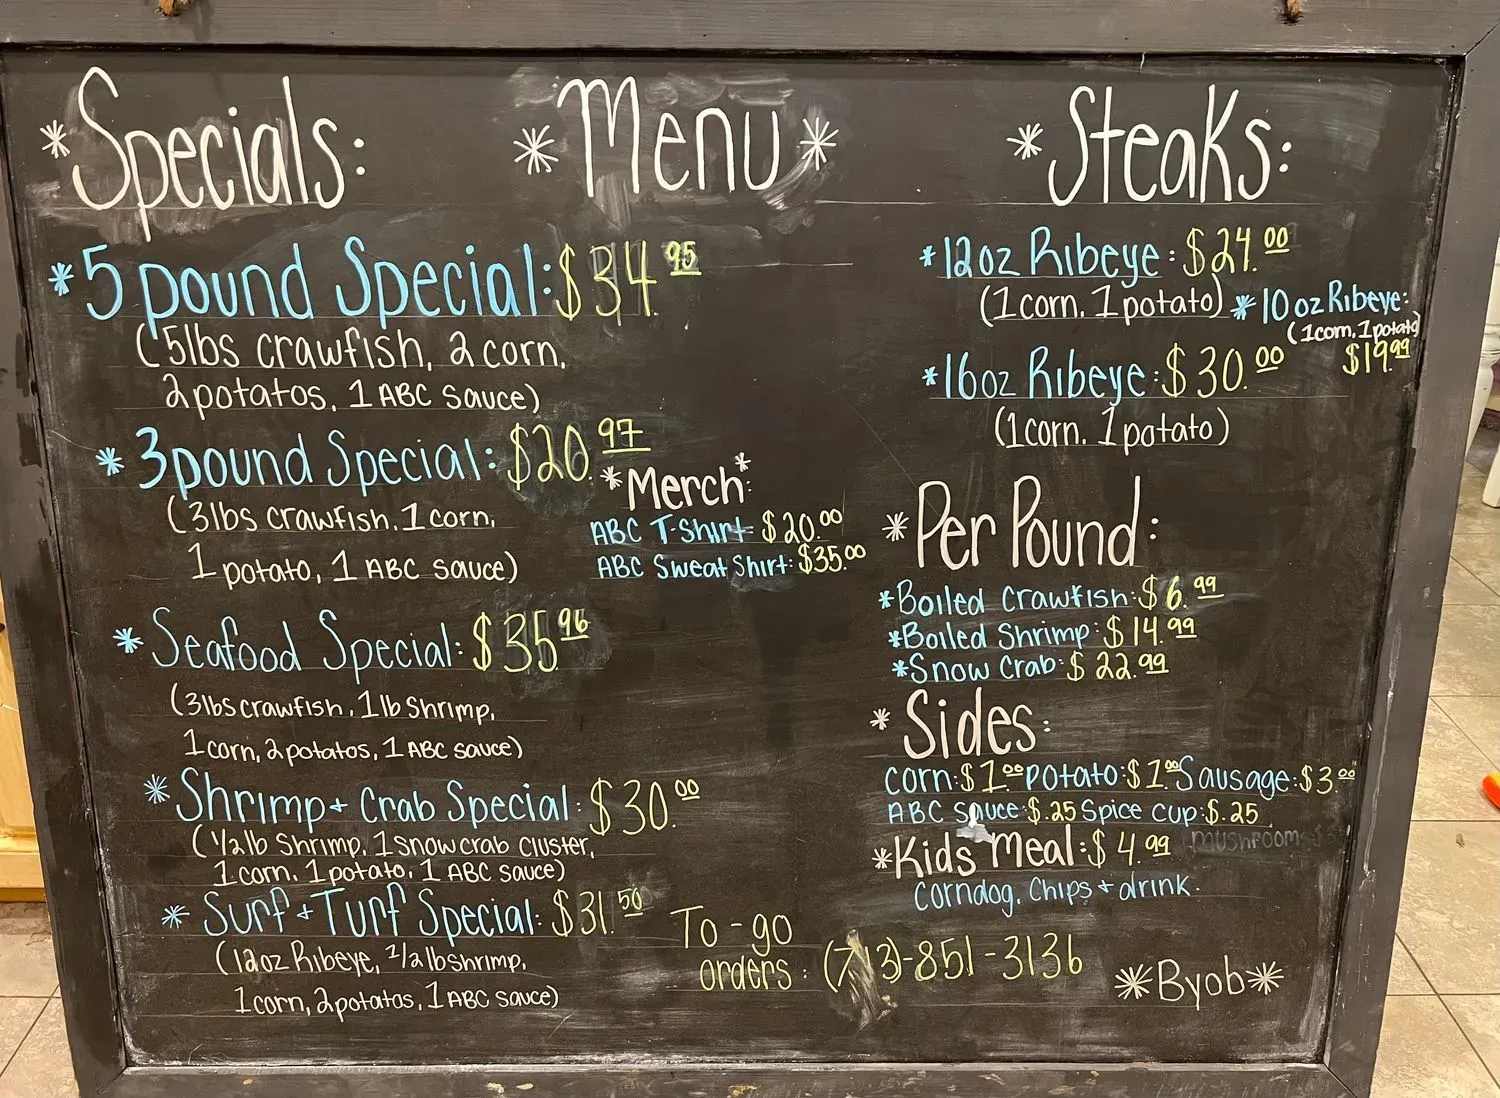 *Specials:
*Menu*
*5 pound Special: $34.95
(5lbs crawfish, 2 corn,
2 potatos, 1 ABC sauce)
*3 pound Special: $20.97
(3lbs crawfish, 1 corn,
1 potato, 1 ABC sauce)
*Seafood Special: $35.96
(3lbs crawfish, 1lb Shrimp,
1 corn, 2 potatos, 1 ABC sauce)
*Shrimp + Crab Special: $30.00
(1/2lb Shrimp, 1 snow crab cluster,
1 corn, 1 potato, 1 ABC sauce)
*Surf + Turf Special: $31.50
(12oz Ribeye, 1/2lb shrimp,
1 corn, 2 potatos, 1 ABC sauce)
*Merch*:
ABC T-Shirt- $20.00
ABC Sweat Shirt: $35.00
To-go
orders: (713)-851-3136
*Steaks:
*12oz Ribeye: $24.00
(1 corn, 1 potato)
*10oz Ribeye:
(1 corn, 1 potato)
$19.99
*16oz Ribeye: $30.00
(1 corn, 1 potato)
*Per Pound:
*Boiled Crawfish: $6.99
*Boiled Shrimp: $14.99
*Snow Crab: $22.99
*Sides:
corn: $1.00 potato: $1.00 Sausage: $3.00
ABC sauce: $.25 Spice cup: $.25
mushroom
*Kids Meal: $4.99
Corndog, Chips + drink.
*Byob*